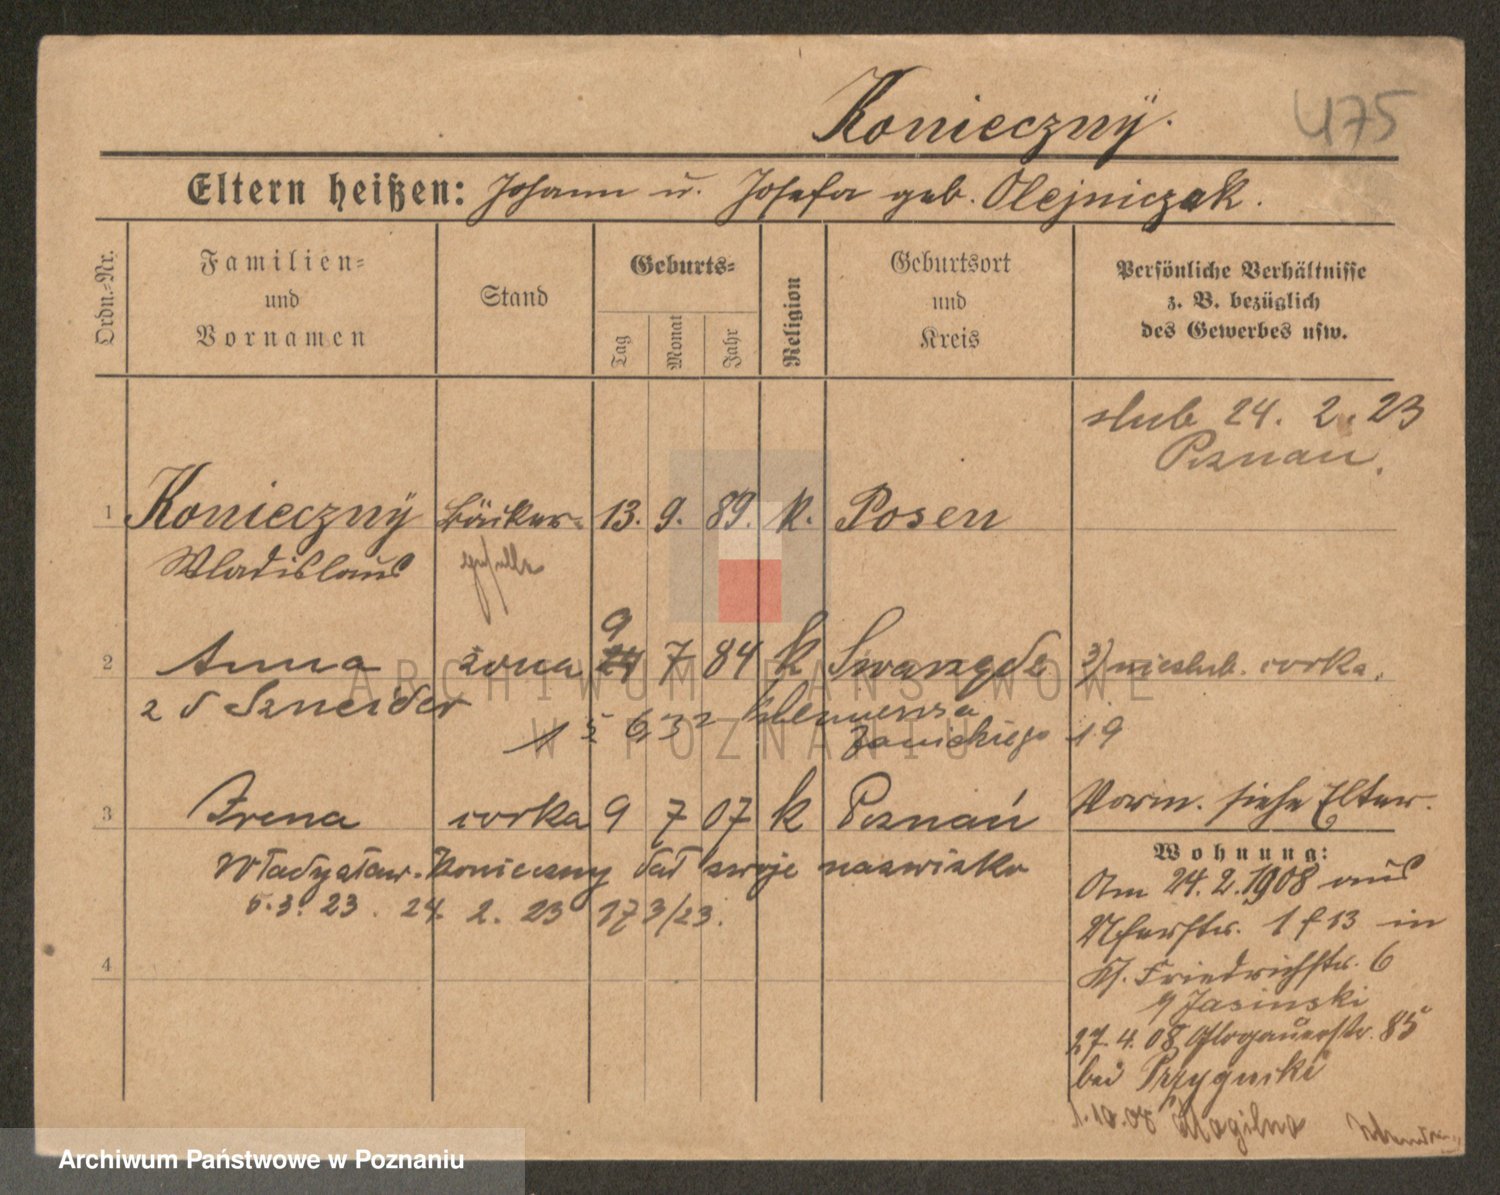 Konieczny.
475
Eltern heißen: Johann u. Josefa geb. Olejniczak.
Ordn.-Nr.
Familien-
und
Vornamen
Stand
Geburts-
Tag
Monat
Jahr
Religion
Geburtsort
und
Kreis
Persönliche Verhältnisse
z. B. bezüglich
des Gewerbes usw.
slub 24. 2. 23
Poznan.
1 Konieczny Bäcker- 13. 9. 89. k. Posen
Wladislaus geselle
9
2 Anna żona 7 84 k Swarzędz 3) nieslub. corka.
z d Szneider
1 5 6 32 Klemensa
Janickiego 19
3 Irena corka 9 7 07 k Poznań Vorm. siehe Elter.
Władysław Konieczny dał swoje nazwisko
5. 3. 23. 24. 2. 23 17 3/23.
4
Wohnung:
Am 24. 2. 1908 aus
1 f 13 in
Friedrichstr. 6
Jasinski
27. 4. 08 Glogauerstr. 85
bei
1. 10. 08 Mogilno
ARCHIWUM PAŃSTWOWE
W POZNANIU
Archiwum Państwowe w Poznaniu